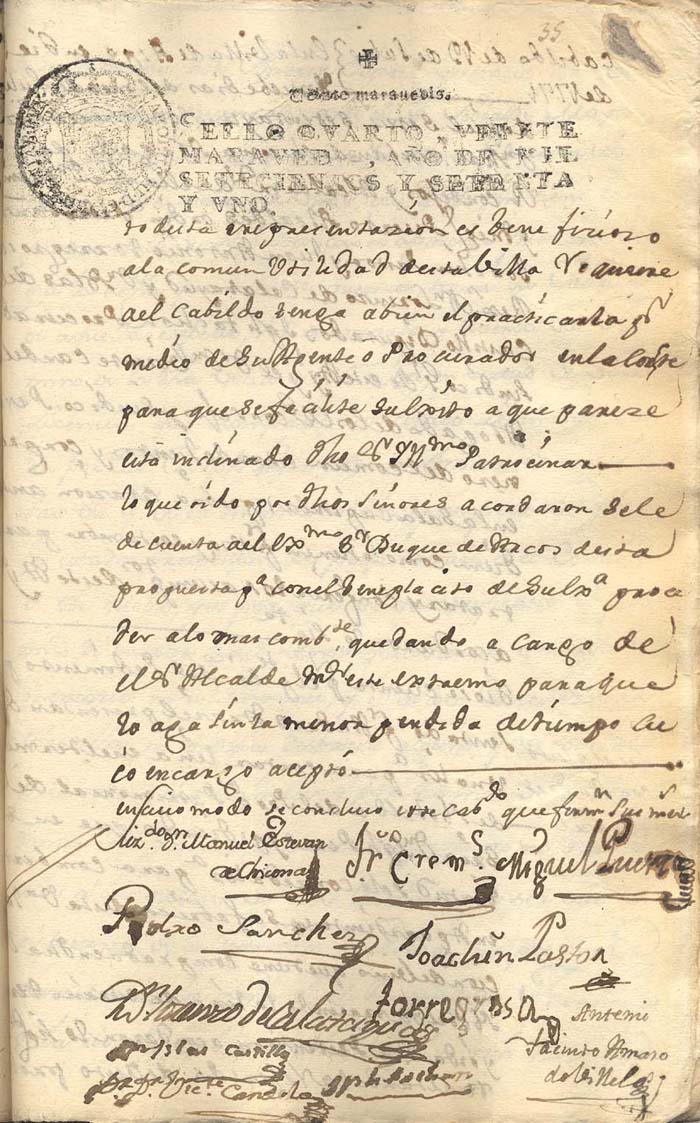 35
Veinte maravedis.
SELLO QVARTO, VEINTE
MARAVEDIS, AÑO DE MIL
SETECIENTOS Y SETENTA
Y VNO.
to desta representazión es venefizioso
ala comun Utilidad desta Villa
ael Cabildo tenga abien el practicarla pr
medio de su Agente o Procurador enla Corte
para que se facilite su exsito a que pareze
está inclinado dho Sr Patrocinar
lo que oido por dhos Señores acordaron sele
de cuenta ael Exmo Sr Duque de Arcos desta
propuesta pa conel Beneplacito de Su Exa proce
der alo mas combte, quedando a cargo de
el Sr Alcalde Mor este extremo para que
lo aga sinla menor perdida de tiempo cu
io encargo aceptó
en cuio modo se concluio este Cabdo que firmn Sus mrds
Lizdo Dn Manuel Estevan
de Chicona
Frco Crems
Miguel
Pedro Sanchez
Joachin Paston
de Calatayud
Torregrosa
Antemi
Blas Castillo
Jacinto Amaro
de Villela
Victe Candela